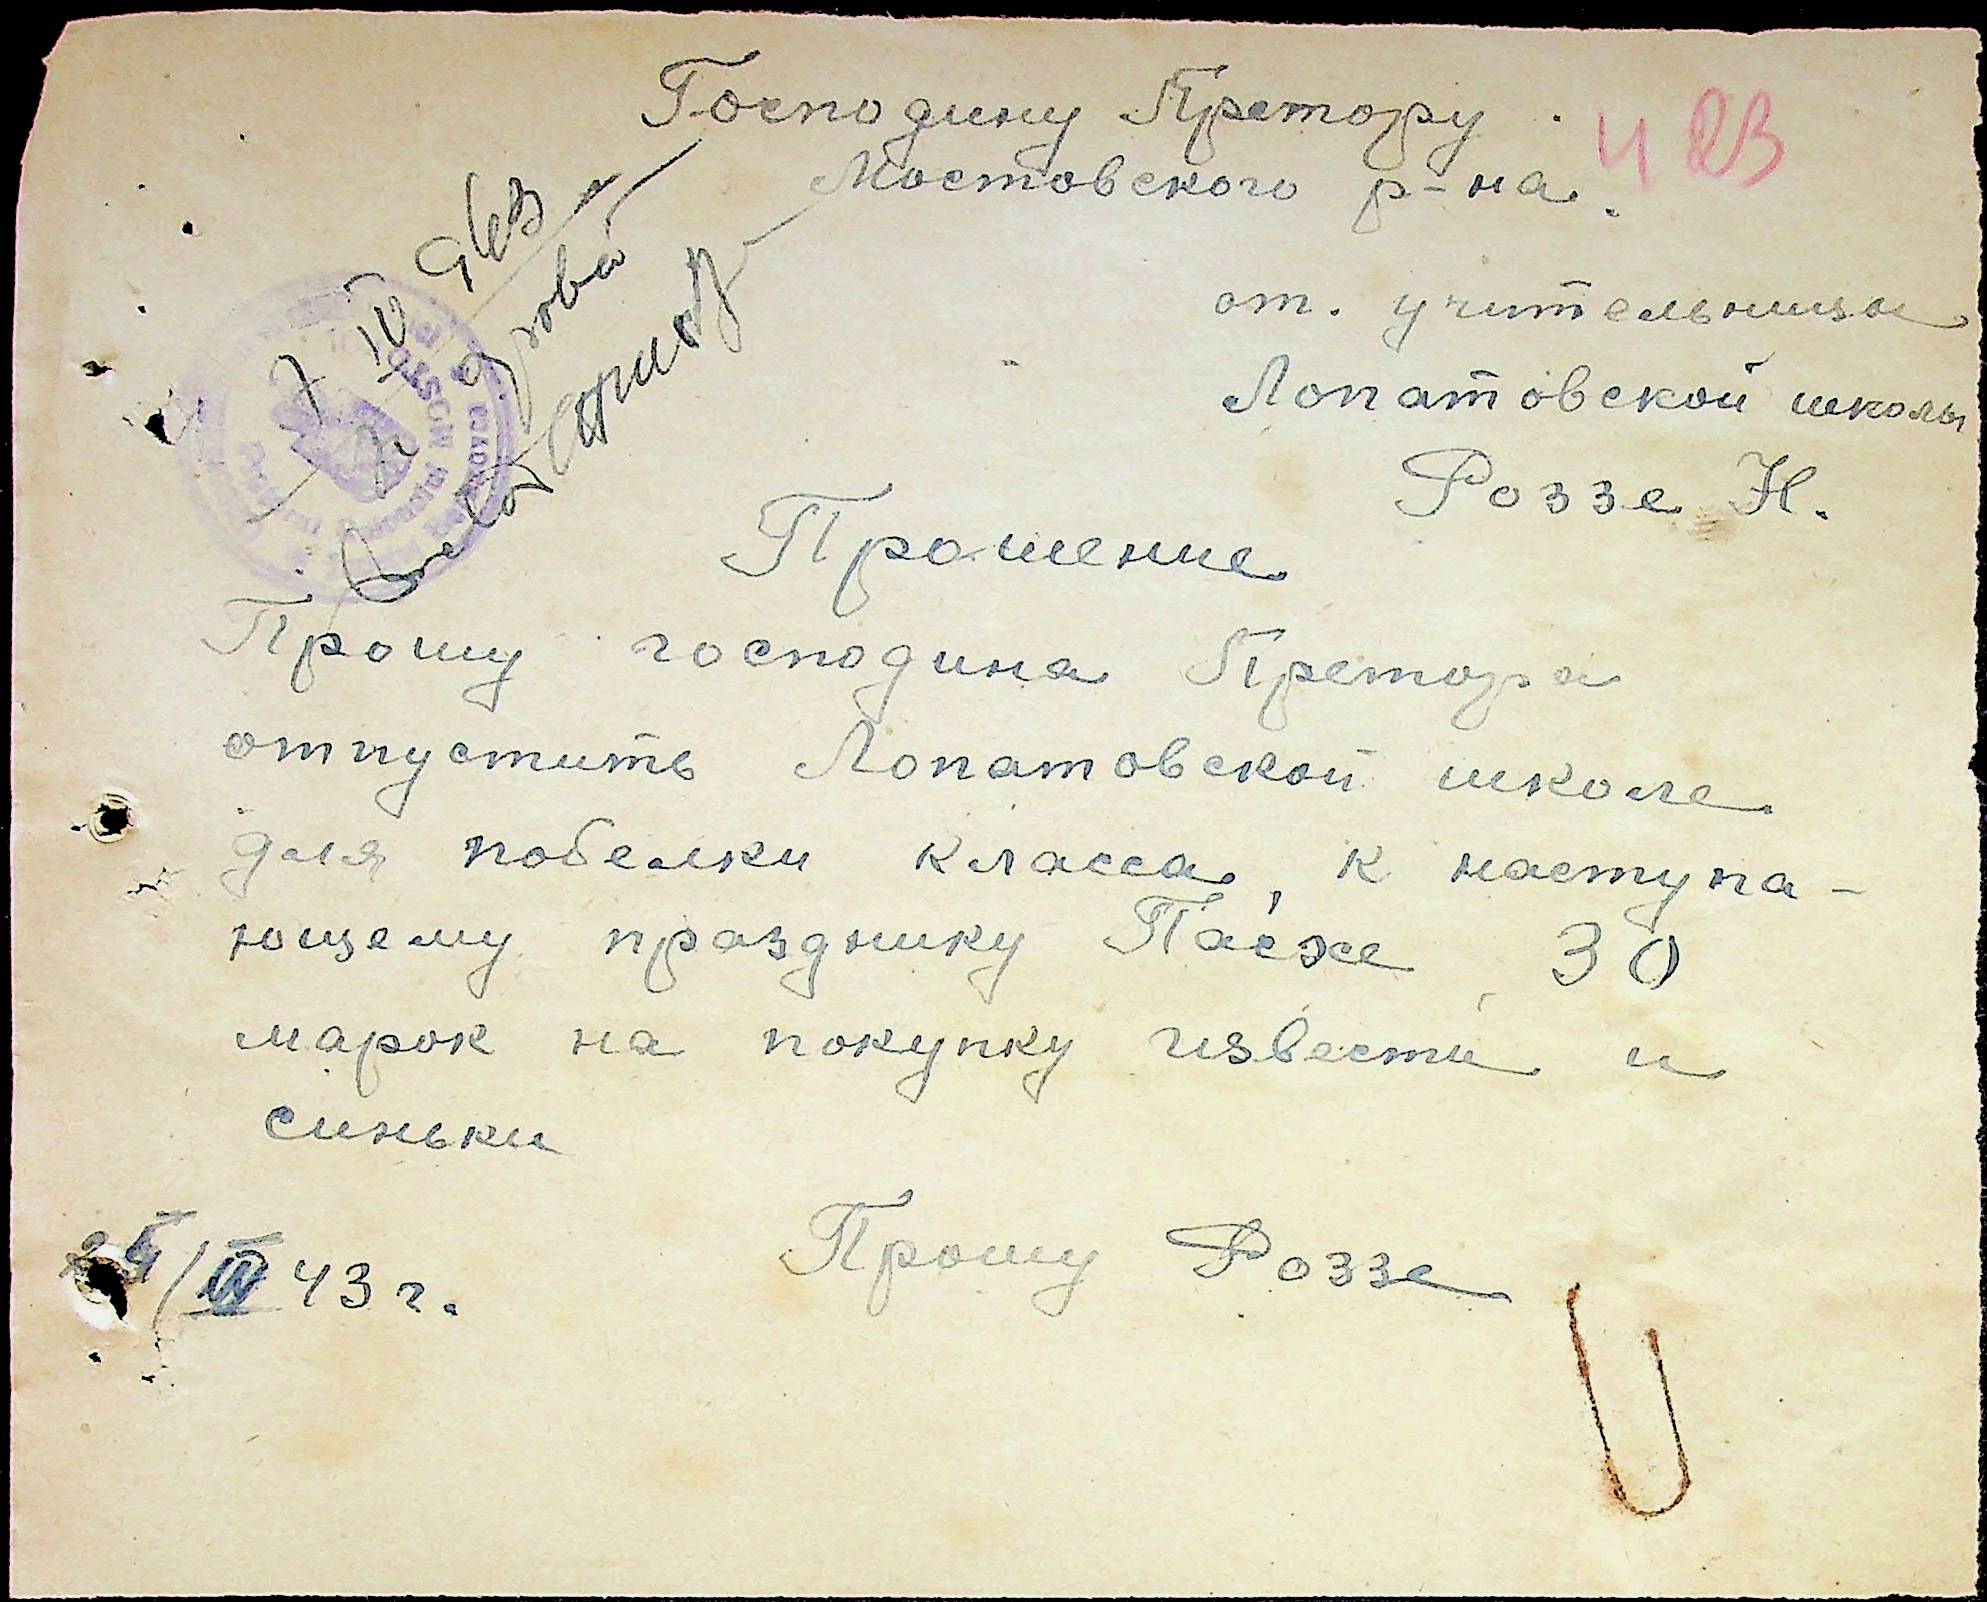 Господину Претору
Мостовского р-на.
от. учительницы
Лопатовской школы
Роззе Н.
Прошение
Прошу господина Претора
отпустить Лопатовской школе
для побелки класса, к наступа-
ющему празднику Пасхе 30
марок на покупку извести и
синьки
Прошу Роззе
43 г.